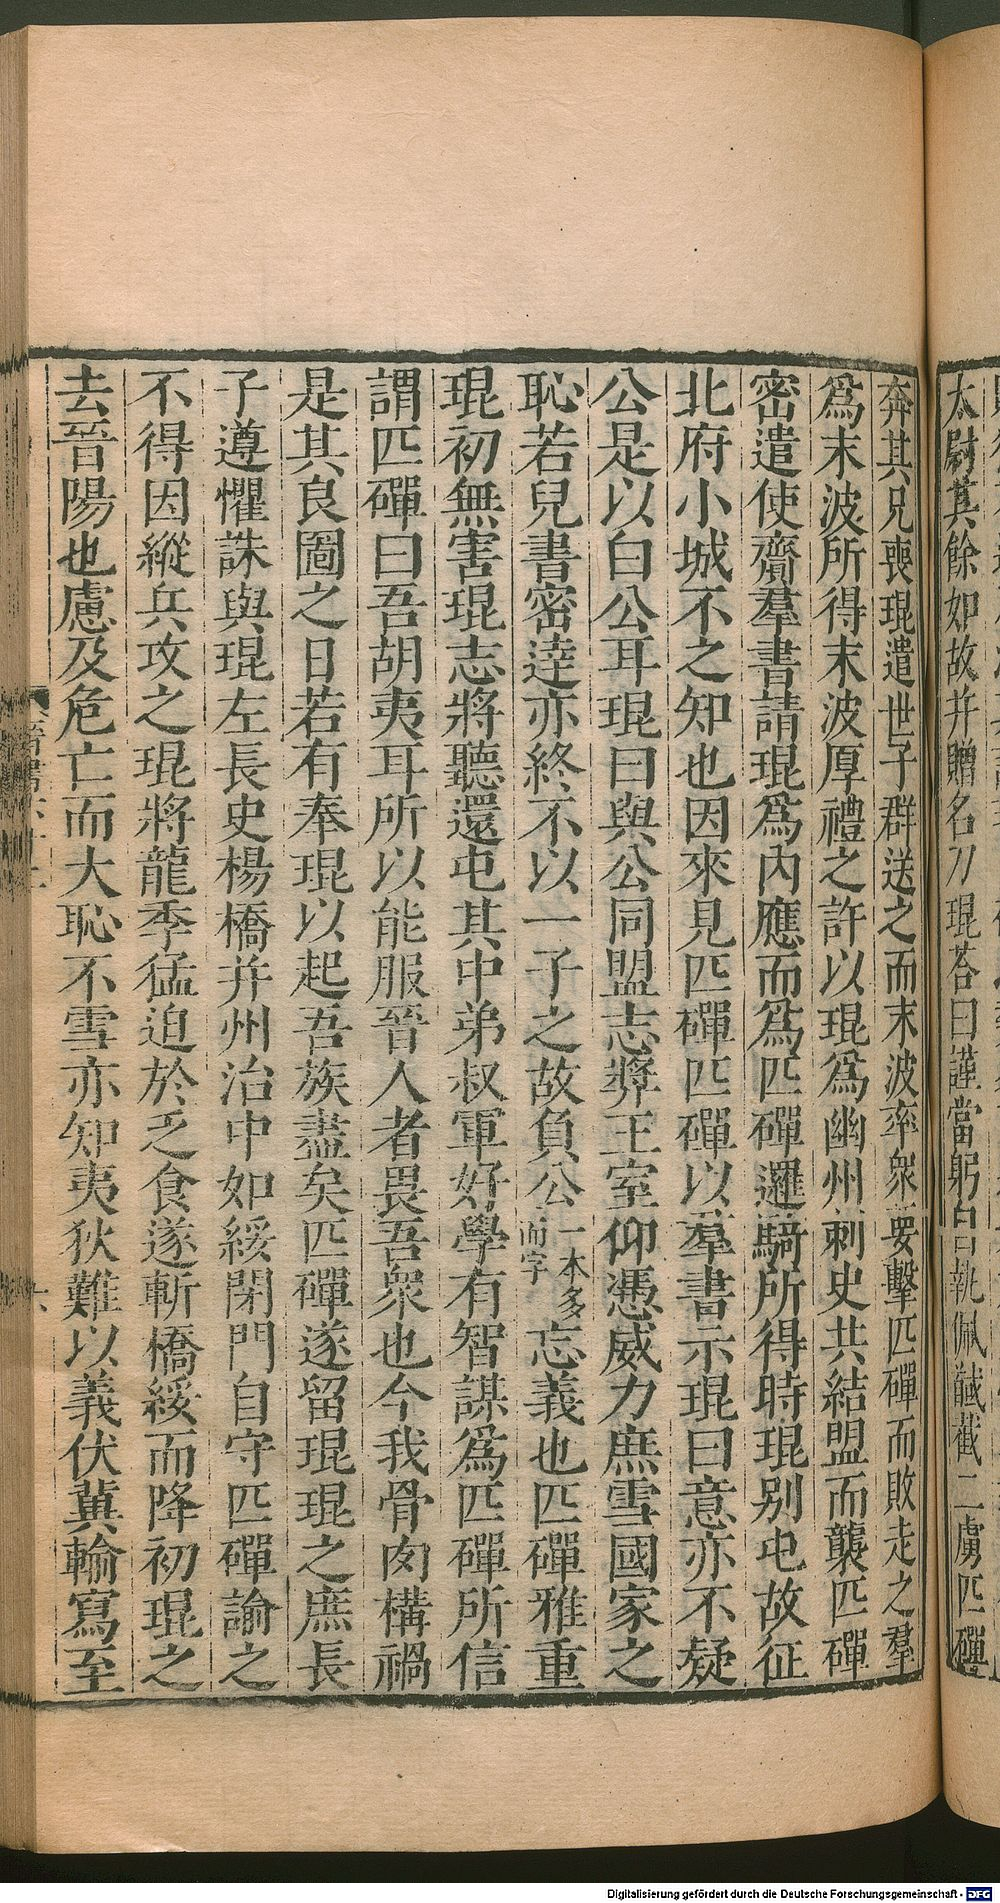 太尉其餘如故并贈名刀琨荅曰謹當躬自執佩馘截二虜匹磾
奔其兄喪琨遣世子群送之而末波率衆要擊匹磾而敗走之羣
爲末波所得末波厚禮之許以琨爲幽州刺史共結盟而襲匹磾
密遣使齎羣書請琨爲內應而爲匹磾邏騎所得時琨別屯故征
北府小城不之知也因來見匹磾匹磾以羣書示琨曰意亦不疑
公是以白公耳琨曰與公同盟志奬王室仰憑威力庶雪國家之
恥若兒書密逹亦終不以一子之故負公一本多而字忘義也匹磾雅重
琨初無害琨志將聽還屯其中弟叔軍好學有智謀爲匹磾所信
謂匹磾曰吾胡夷耳所以能服晉人者畏吾衆也今我骨肉構禍
是其良圖之日若有奉琨以起吾族盡矣匹磾遂留琨琨之庶長
子遵懼誅與琨左長史楊橋并州治中如綏閉門自守匹磾諭之
不得因縱兵攻之琨將龍季猛迫於乏食遂斬橋綏而降初琨之
去晉陽也慮及危亡而大恥不雪亦知夷狄難以義伏冀輸寫至
Digitalisierung gefördert durch die Deutsche Forschungsgemeinschaft - DFG